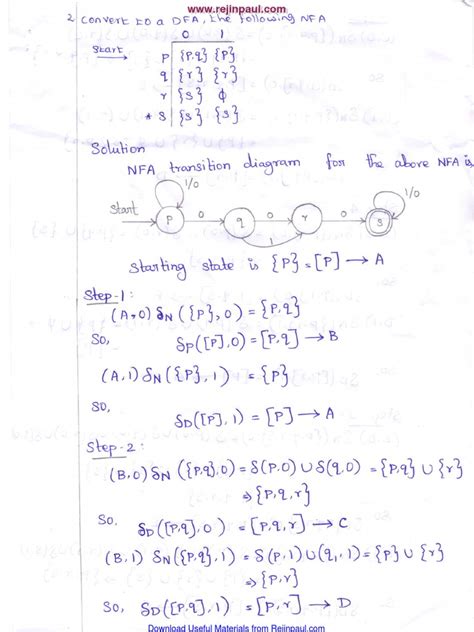 www.rejinpaul.com
2 Convert to a DFA, the following NFA
0 1
Start → P {P,q} {P}
q {r} {r}
r {s} ϕ
* S {s} {s}
Solution
NFA transition diagram for the above NFA is
1/0 1/0
Start P 0 q 0 r 0 s
1
Starting state is {P} = [P] → A
Step-1:
(A,0) δN ({P},0) = {P,q}
So, δP([P],0) = [P,q] → B
(A,1) δN ({P},1) = {P}
so, δD([P],1) = [P] → A
Step-2:
(B,0) δN ({P,q},0) = δ(P,0) ∪ δ(q,0) = {P,q} ∪ {r}
⇒ {P,q,r}
So, δD([P,q],0) = [P,q,r] → C
(B,1) δN({P,q},1) = δ(P,1) ∪ (q,1) = {P} ∪ {r}
⇒ {P,r}
So, δD([P,q],1) = [P,r] → D
Download Useful Materials from Rejinpaul.com